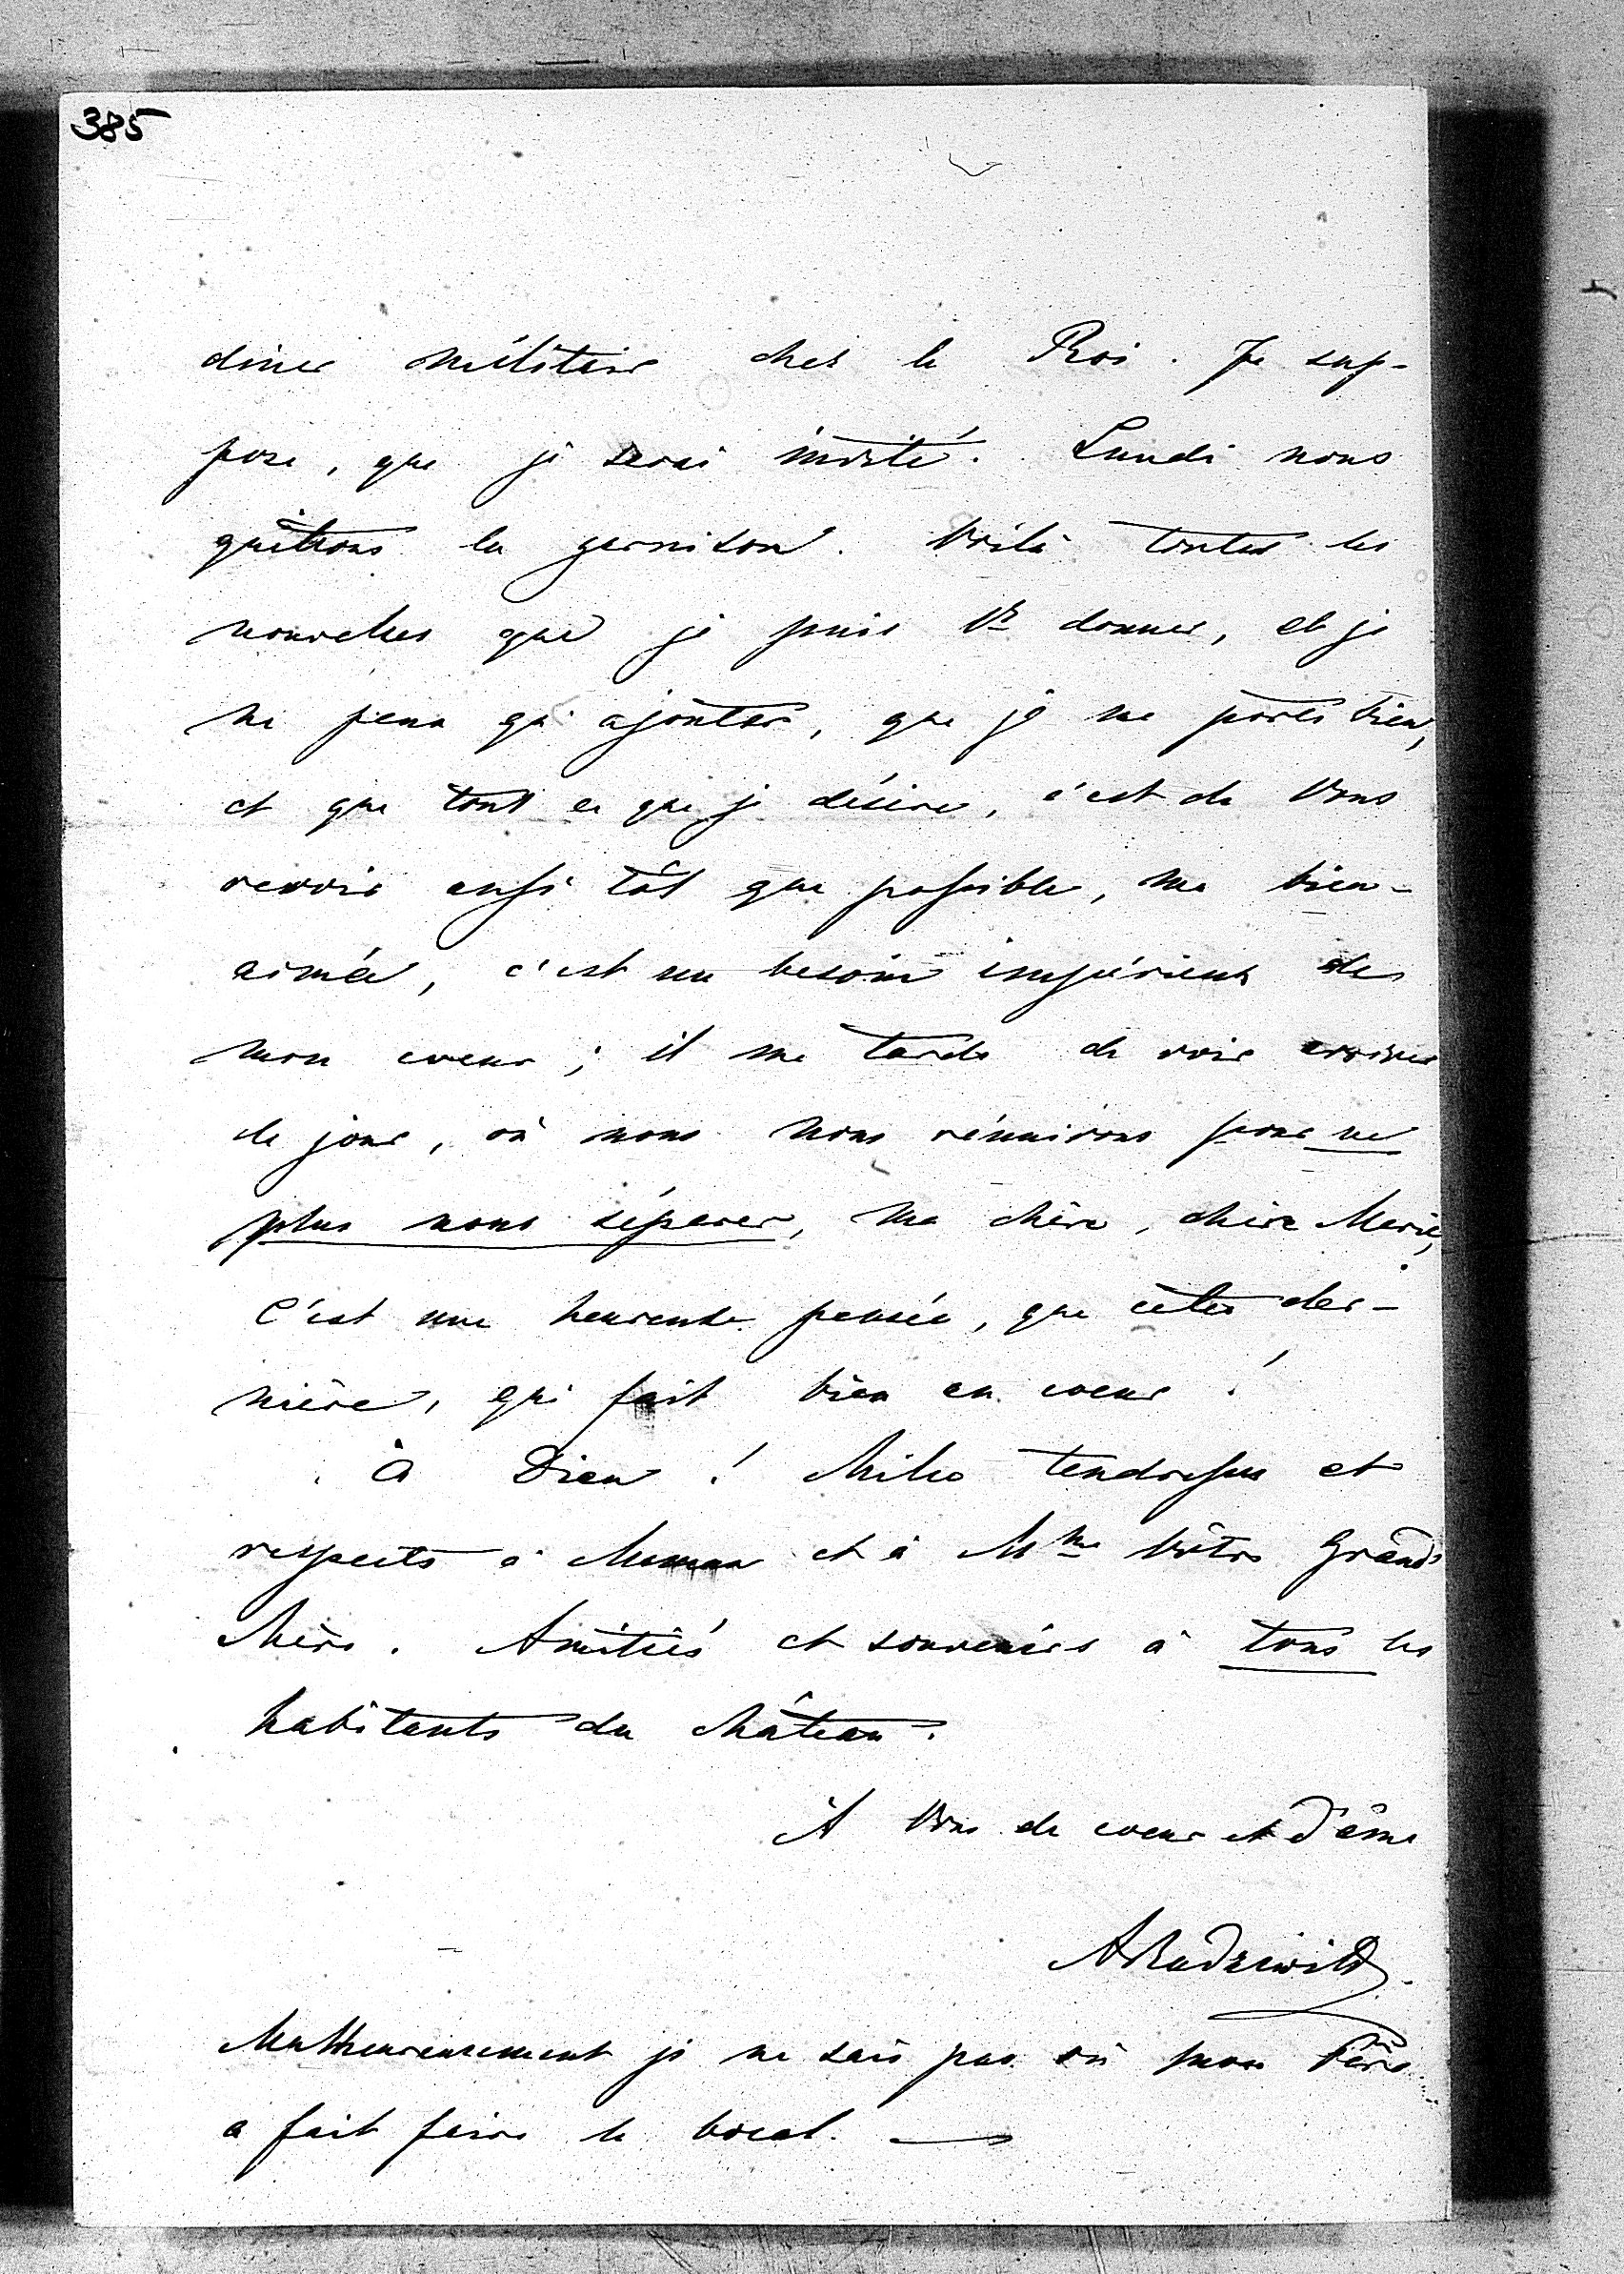 385
diner militaire chez le Roi. Je sup-
pose, que je serai invité. Lundi nous
quittons la garnison. Voilà toutes les
nouvelles que je puis Vs donner, et je
ne peux qu'ajouter, que je me porte bien,
et que tout ce que je désire, c'est de Vous
revoir aussi tôt que possible, ma bien-
aimée, c'est un besoin impérieux de
mon coeur; il me tarde de voir arriver
le jour, où nous nous réunirons pour ne
plus nous séparer, ma chère, chère Marie,
C'est une heureuse pensée, que cette der-
nière, qui fait bien au coeur!
À Dieu! Mille tendresses et
respects à Maman et à Mme Vôtre Grand'
Mère. Amitiés et souvenirs à tous les
habitants du château.
A Vous de coeur et d'âme
ARadziwill.
Malheureusement je ne sais pas où mon Père
a fait faire le bocal.